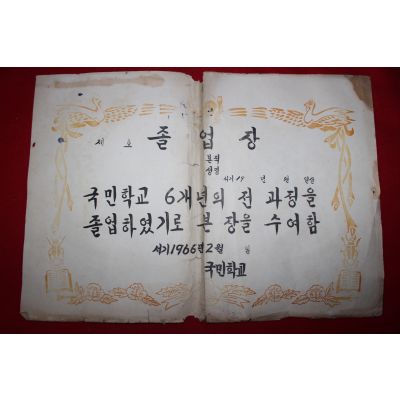 제 호 졸업장
본적
성명
서기19 년 월 일생
국민학교 6개년의 전 과정을
졸업하였기로 본 장을 수여함
서기1966년2월 일
국민학교